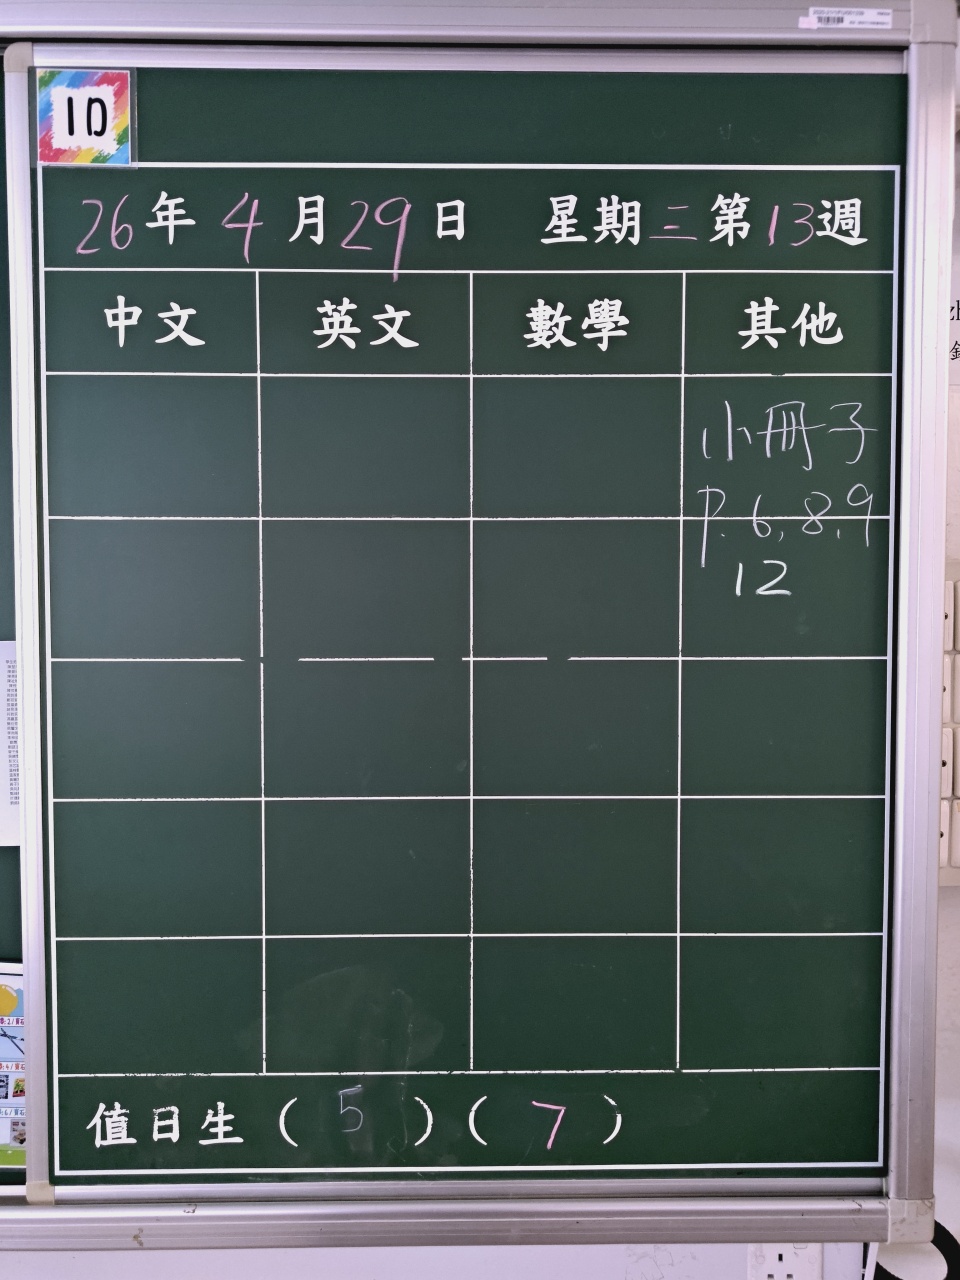 1D
26年4月29日 星期三第13週
中文 英文 數學 其他
小冊子
P.6,8,9
12
值日生(5)(7)